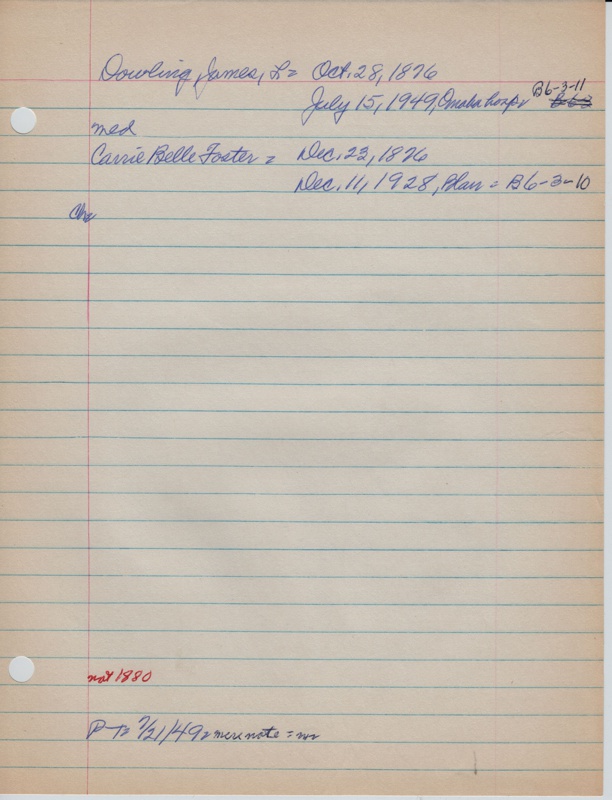 Dowling, James, L = Oct. 28, 1876
B6-3-11
July 15, 1949, Omaha hosp
med
Carrie Belle Foster = Dec. 23, 1876
Dec. 11, 1928, Blair = B6-3-10
Chr
not 1880
P-T= 7/21/49= mere note =